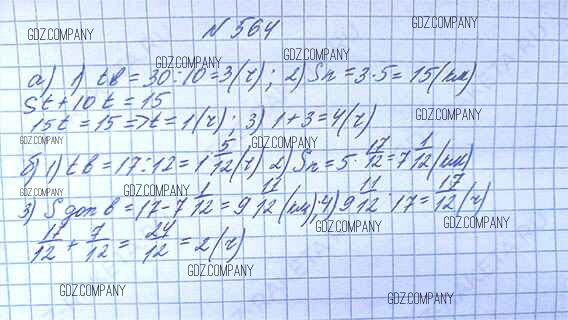 N 564
GDZ.COMPANY
GDZ.COMPANY
GDZ.COMPANY
GDZ.COMPANY
а) 1) tв = 30 : 10 = 3 (ч); 2) Sп = 3·5 = 15 (км)
5t + 10t = 15
GDZ.COMPANY
GDZ.COMPANY
15t = 15 => t = 1 (ч); 3) 1 + 3 = 4 (ч)
GDZ.COMPANY
б) 1) tв = 17 : 12 = 1 5/12 (ч) 2) Sп = 5 · 17/12 = 7 1/12 (км)
GDZ.COMPANY
GDZ.COMPANY
3) S доп в = 17 - 7 1/12 = 9 11/12 (км); 4) 9 11/12 : 17 = 17/12 (ч)
GDZ.COMPANY
GDZ.COMPANY
17/12 + 7/12 = 24/12 = 2 (ч)
GDZ.COMPANY
GDZ.COMPANY
GDZ.COMPANY